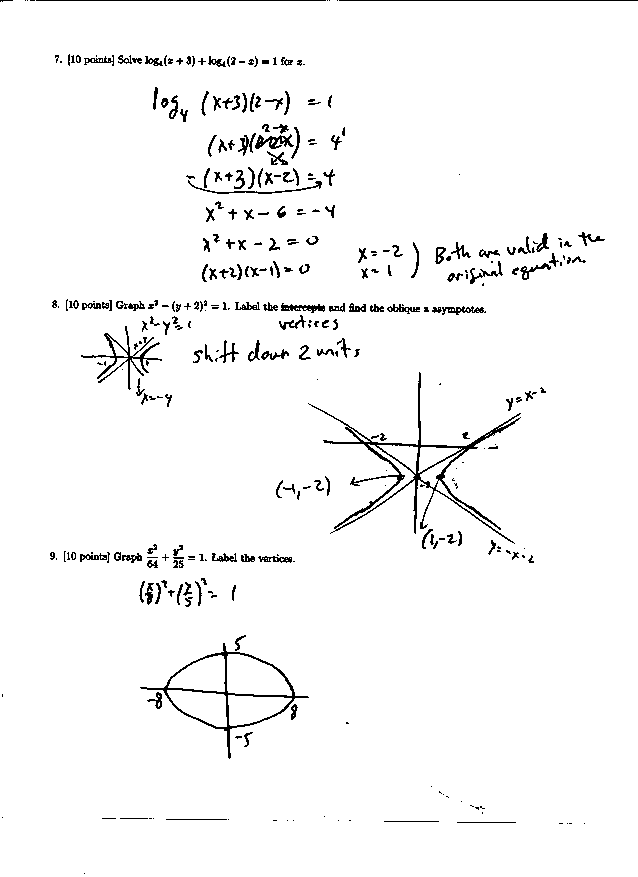 7. [10 points] Solve log₄(x + 3) + log₄(2 − x) = 1 for x.
log₄ (x+3)(2−x) = 1
2−x
(x+3)( ) = 4¹
−(x+3)(x−2) = 4
x² + x − 6 = −4
x² + x − 2 = 0
(x+2)(x−1) = 0
x = −2
x = 1
) Both are valid in the
original equation.
8. [10 points] Graph x² − (y + 2)² = 1. Label the intercepts and find the oblique a asymptotes.
vertices
x²−y²=1
shift down 2 units
−1
x=−y
y=x−2
−2 2
−2
(−1,−2)
(1,−2)
y=−x−2
9. [10 points] Graph x²/64 + y²/25 = 1. Label the vertices.
(x/8)²+(y/5)² = 1
5
−8 8
−5